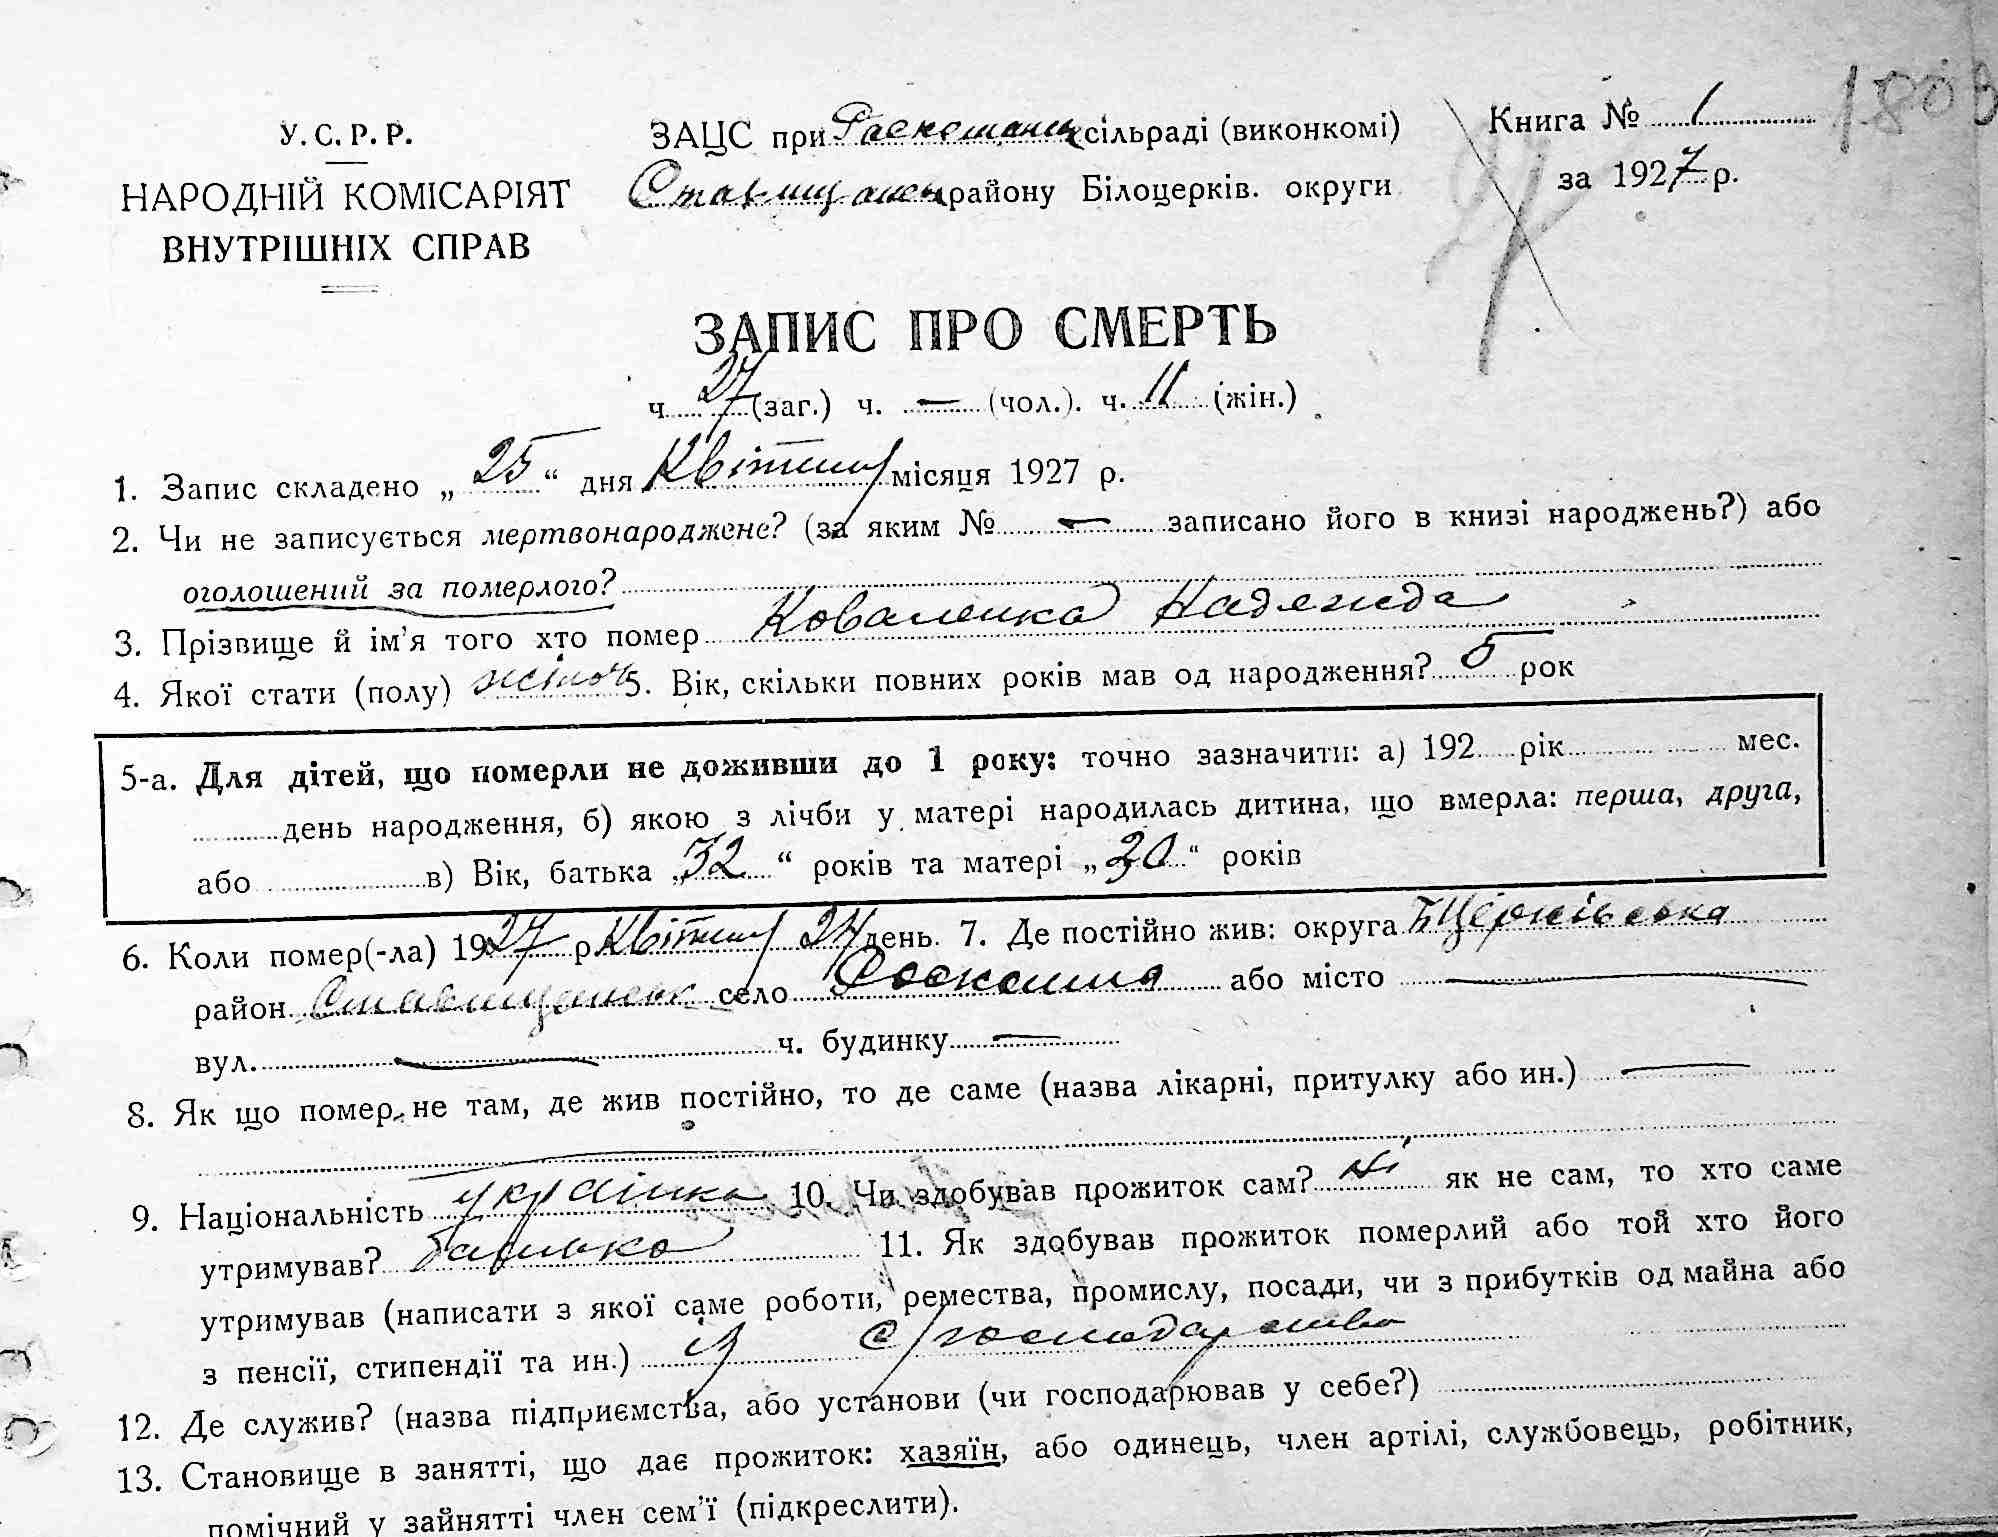 У.С.Р.Р.
НАРОДНІЙ КОМІСАРІЯТ
ВНУТРІШНІХ СПРАВ
ЗАЦС при Роскошанск сільраді (виконкомі)
Ставищанськ району Білоцерків. округи
Книга № 1
за 1927 р.
ЗАПИС ПРО СМЕРТЬ
ч. 27 (заг.) ч. — (чол.). ч. 11 (жін.)
1. Запис складено „25“ дня Квітня місяця 1927 р.
2. Чи не записується мертвонароджене? (за яким № — записано його в книзі народжень?) або
оголошений за померлого?
3. Прізвище й ім’я того хто помер Коваленко Надежда
4. Якої стати (полу) жіноч 5. Вік, скільки повних років мав од народження? 5 рок
5-а. Для дітей, що померли не доживши до 1 року: точно зазначити: а) 192 рік мес.
день народження, б) якою з лічби у матері народилась дитина, що вмерла: перша, друга,
або в) Вік, батька „32“ років та матері „30“ років
6. Коли помер(-ла) 1927 р Квітня 24 день. 7. Де постійно жив: округа БЦерківська
район Ставищанськ село Роскошна або місто —
вул. — ч. будинку —
8. Як що помер не там, де жив постійно, то де саме (назва лікарні, притулку або ин.) —
9. Національність українка 10. Чи здобував прожиток сам? ні як не сам, то хто саме
утримував? батько 11. Як здобував прожиток померлий або той хто його
утримував (написати з якої саме роботи, ремества, промислу, посади, чи з прибутків од майна або
з пенсії, стипендії та ин.) із с/господарства
12. Де служив? (назва підприємства, або установи (чи господарював у себе?)
13. Становище в занятті, що дає прожиток: хазяїн, або одинець, член артілі, службовець, робітник,
помічний у зайнятті член сем’ї (підкреслити).